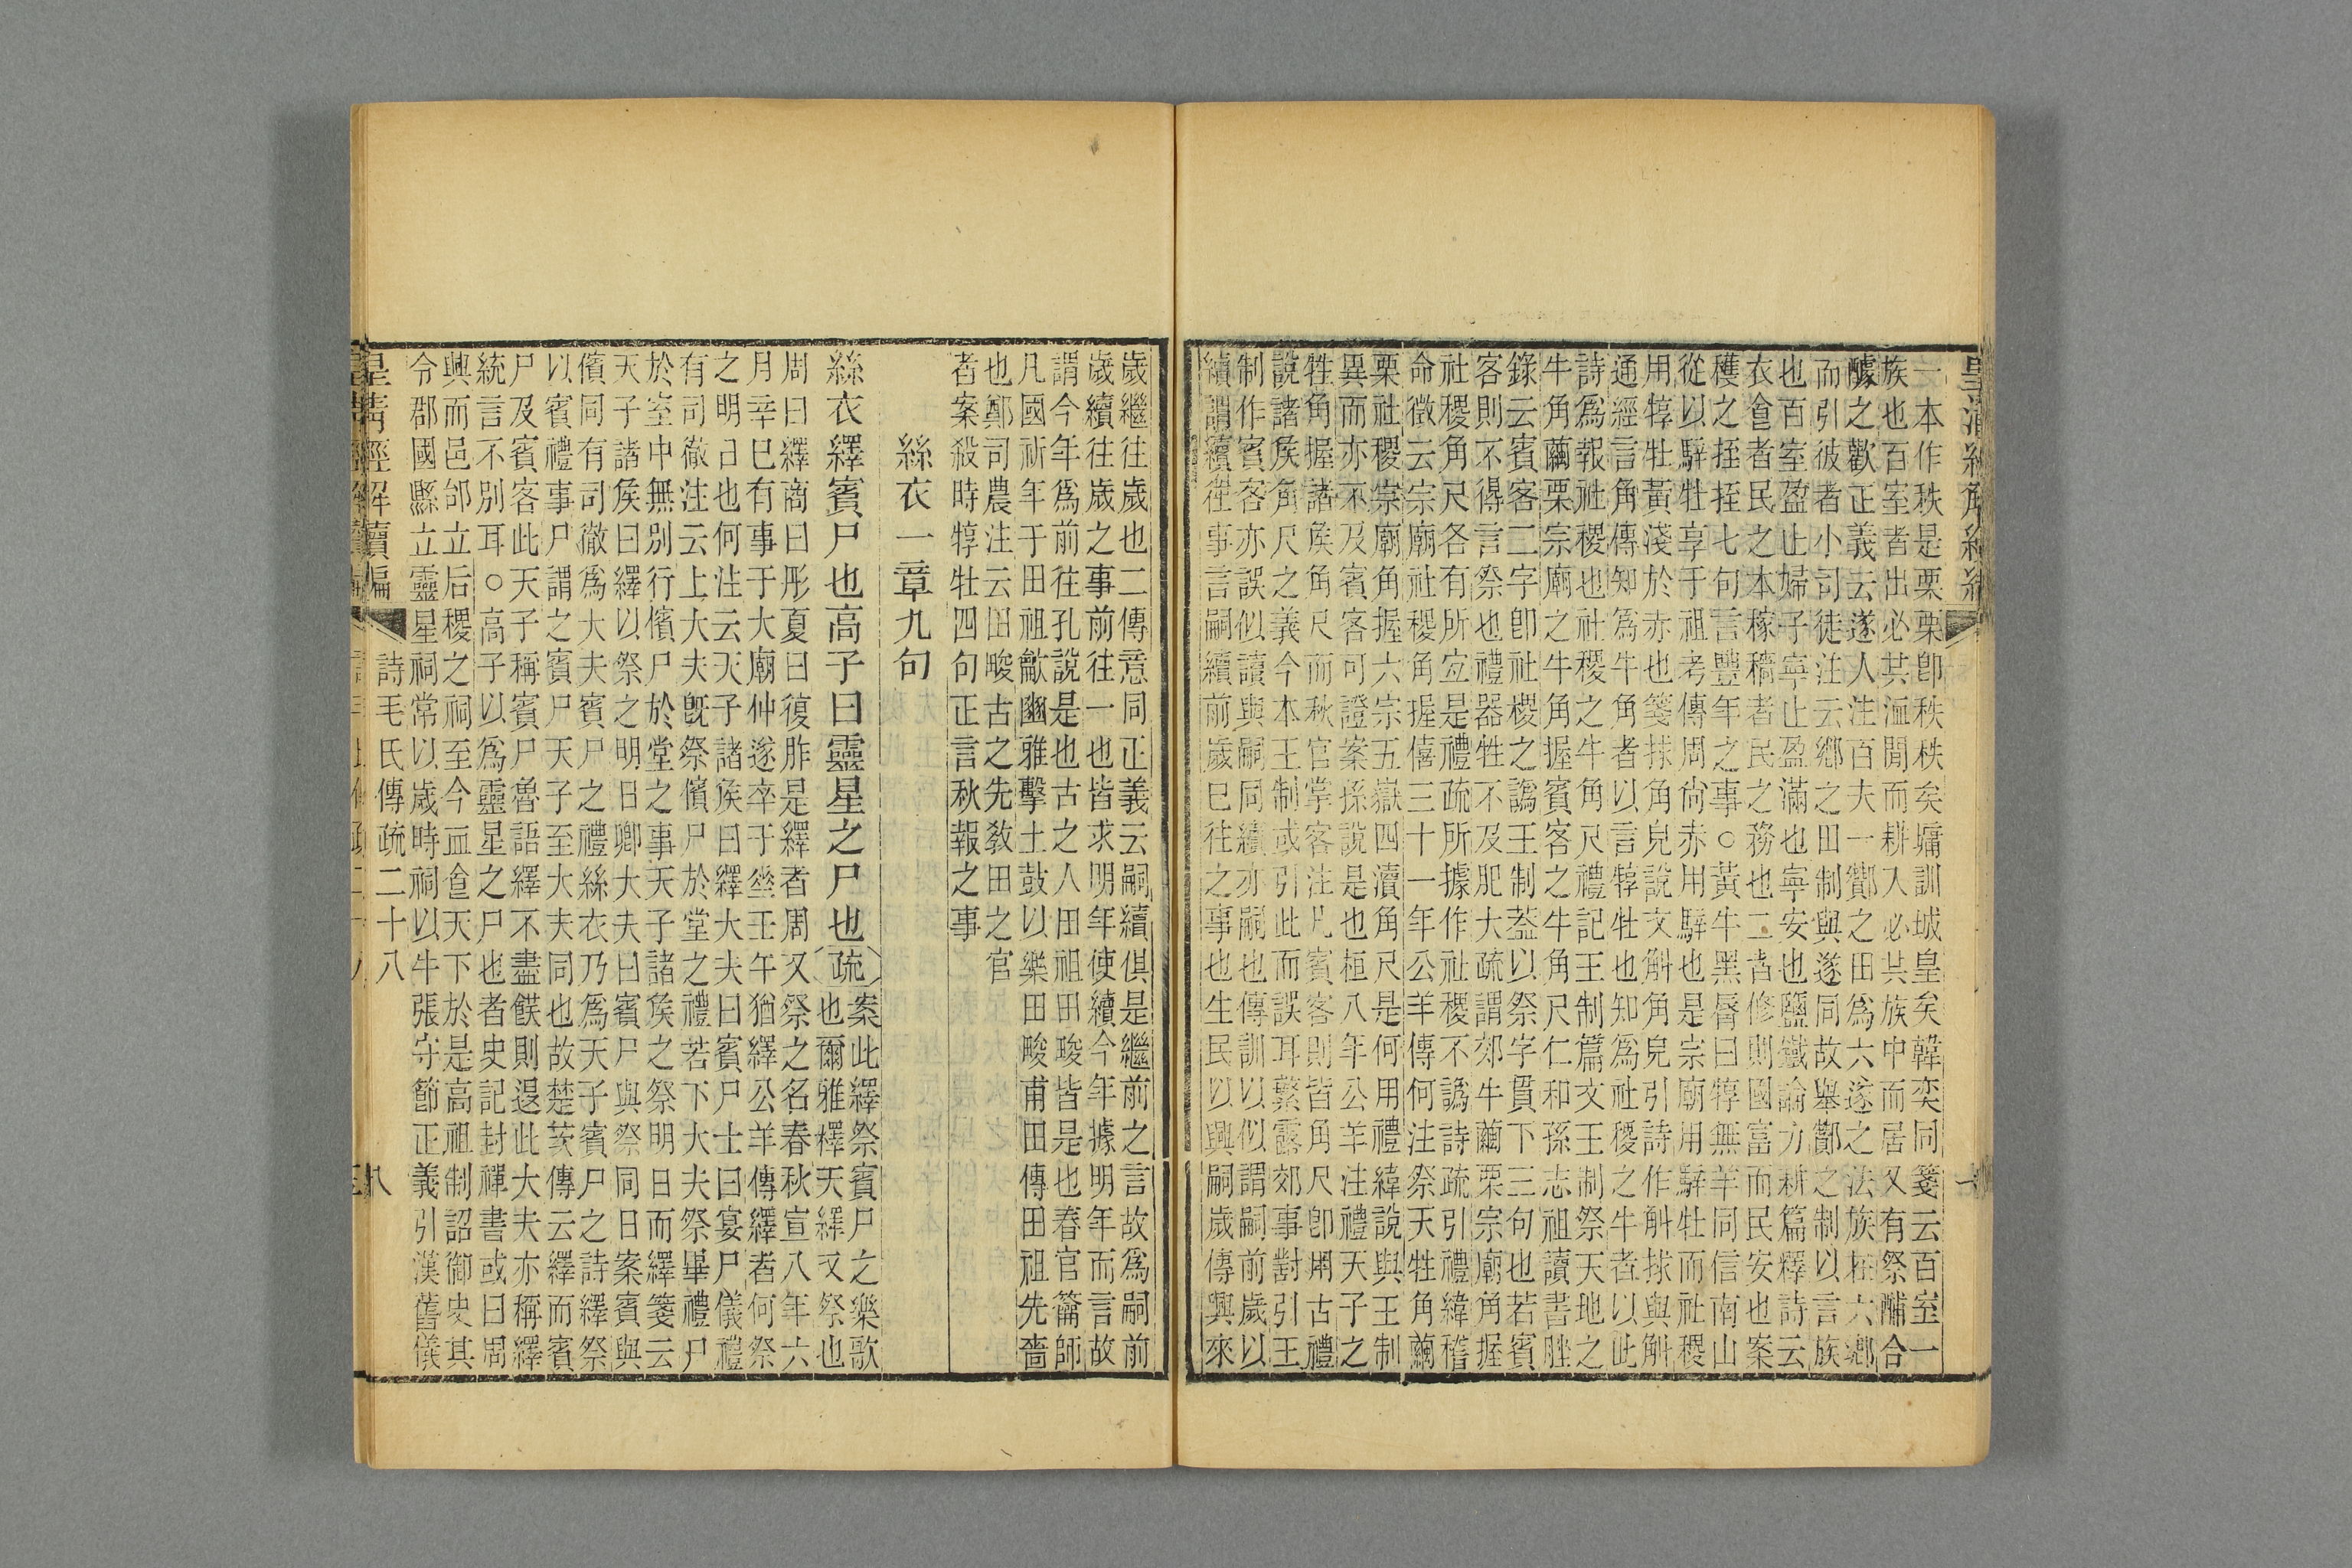 皇清經解續編
一本作秩是栗栗卽秩秩矣墉訓城皇矣韓奕同箋云百室一
族也百室者出必共洫閒而耕入必共族中而居又有祭酺合
醵之歡正義云遂人注百夫一酇之田爲六遂之法族在六鄉
而引彼者小司徒注云鄉之田制與遂同故舉酇之制以言族
也百室盈止婦子寧止盈滿也寧安也鹽鐵論力耕篇釋詩云
衣食者民之本稼穡者民之務也二者修則國富而民安也案
穫之挃挃七句言豐年之事○黃牛黑脣曰犉無羊同信南山
從以騂牡享于祖考傳周尙赤用騂也是宗廟用騂牡而社稷
用犉牡黃淺於赤也箋捄角皃說文斛角皃引詩作斛捄與斛
通經言角傳知爲牛角者以言犉牡也知爲社稷之牛者以此
詩爲報社稷也社稷之牛角尺禮記王制篇文王制祭天地之
牛角繭栗宗廟之牛角握賓客之牛角尺仁和孫志祖讀書脞
錄云賓客二字卽社稷之譌王制蓋以祭字貫下三句也若賓
客則不得言祭也禮器牲不及肥大疏謂郊牛繭栗宗廟角握
社稷角尺各有所宜是禮疏所據作社稷不譌詩疏引禮緯稽
命徵云宗廟社稷角握僖三十一年公羊傳何注祭天牲角繭
栗社稷宗廟角握六宗五嶽四瀆角尺是何用禮緯說與王制
異而亦不及賓客可證案孫說是也桓八年公羊注禮天子之
牲角握諸矦角尺而秋官掌客注凡賓客則皆角尺卽用古禮
說諸矦角尺之義今本王制或引此而誤耳繁露郊事對引王
制作賓客亦誤似讀與嗣同續亦嗣也傳訓以似謂嗣前歲以
續謂續往事言嗣續前歲已往之事也生民以興嗣歲傳興來
歲繼往歲也二傳意同正義云嗣續俱是繼前之言故爲嗣前
歲續往歲之事前往一也皆求明年使續今年據明年而言故
謂今年爲前往孔說是也古之人田祖田畯皆是也春官籥師
凡國祈年于田祖龡豳雅擊土鼓以樂田畯甫田傳田祖先嗇
也鄭司農注云田畯古之先敎田之官
者案殺時犉牡四句正言秋報之事
絲衣一章九句
絲衣繹賓尸也高子曰靈星之尸也疏案此繹祭賓尸之樂歌
也爾雅釋天繹又祭也
周曰繹商曰肜夏曰復胙是繹者周又祭之名春秋宣八年六
月辛巳有事于大廟仲遂卒于垂壬午猶繹公羊傳繹者何祭
之明日也何注云天子諸矦曰繹大夫曰賓尸士曰宴尸儀禮
有司徹注云上大夫旣祭儐尸於堂之禮若下大夫祭畢禮尸
於室中無別行儐尸於堂之事天子諸矦之祭明日而繹箋云
天子諸矦曰繹以祭之明日卿大夫曰賓尸與祭同日案賓與
儐同有司徹爲大夫賓尸之禮絲衣乃爲天子賓尸之詩繹祭
以賓禮事尸謂之賓尸天子至大夫同也故楚茨傳云繹而賓
尸及賓客此天子稱賓尸魯語繹不盡飫則退此大夫亦稱繹
統言不別耳○高子以爲靈星之尸也者史記封禪書或曰周
興而邑邰立后稷之祠至今血食天下於是高祖制詔御史其
令郡國縣立靈星祠常以歲時祠以牛張守節正義引漢舊儀
皇清經解續編
詩毛氏傳疏二十八
八